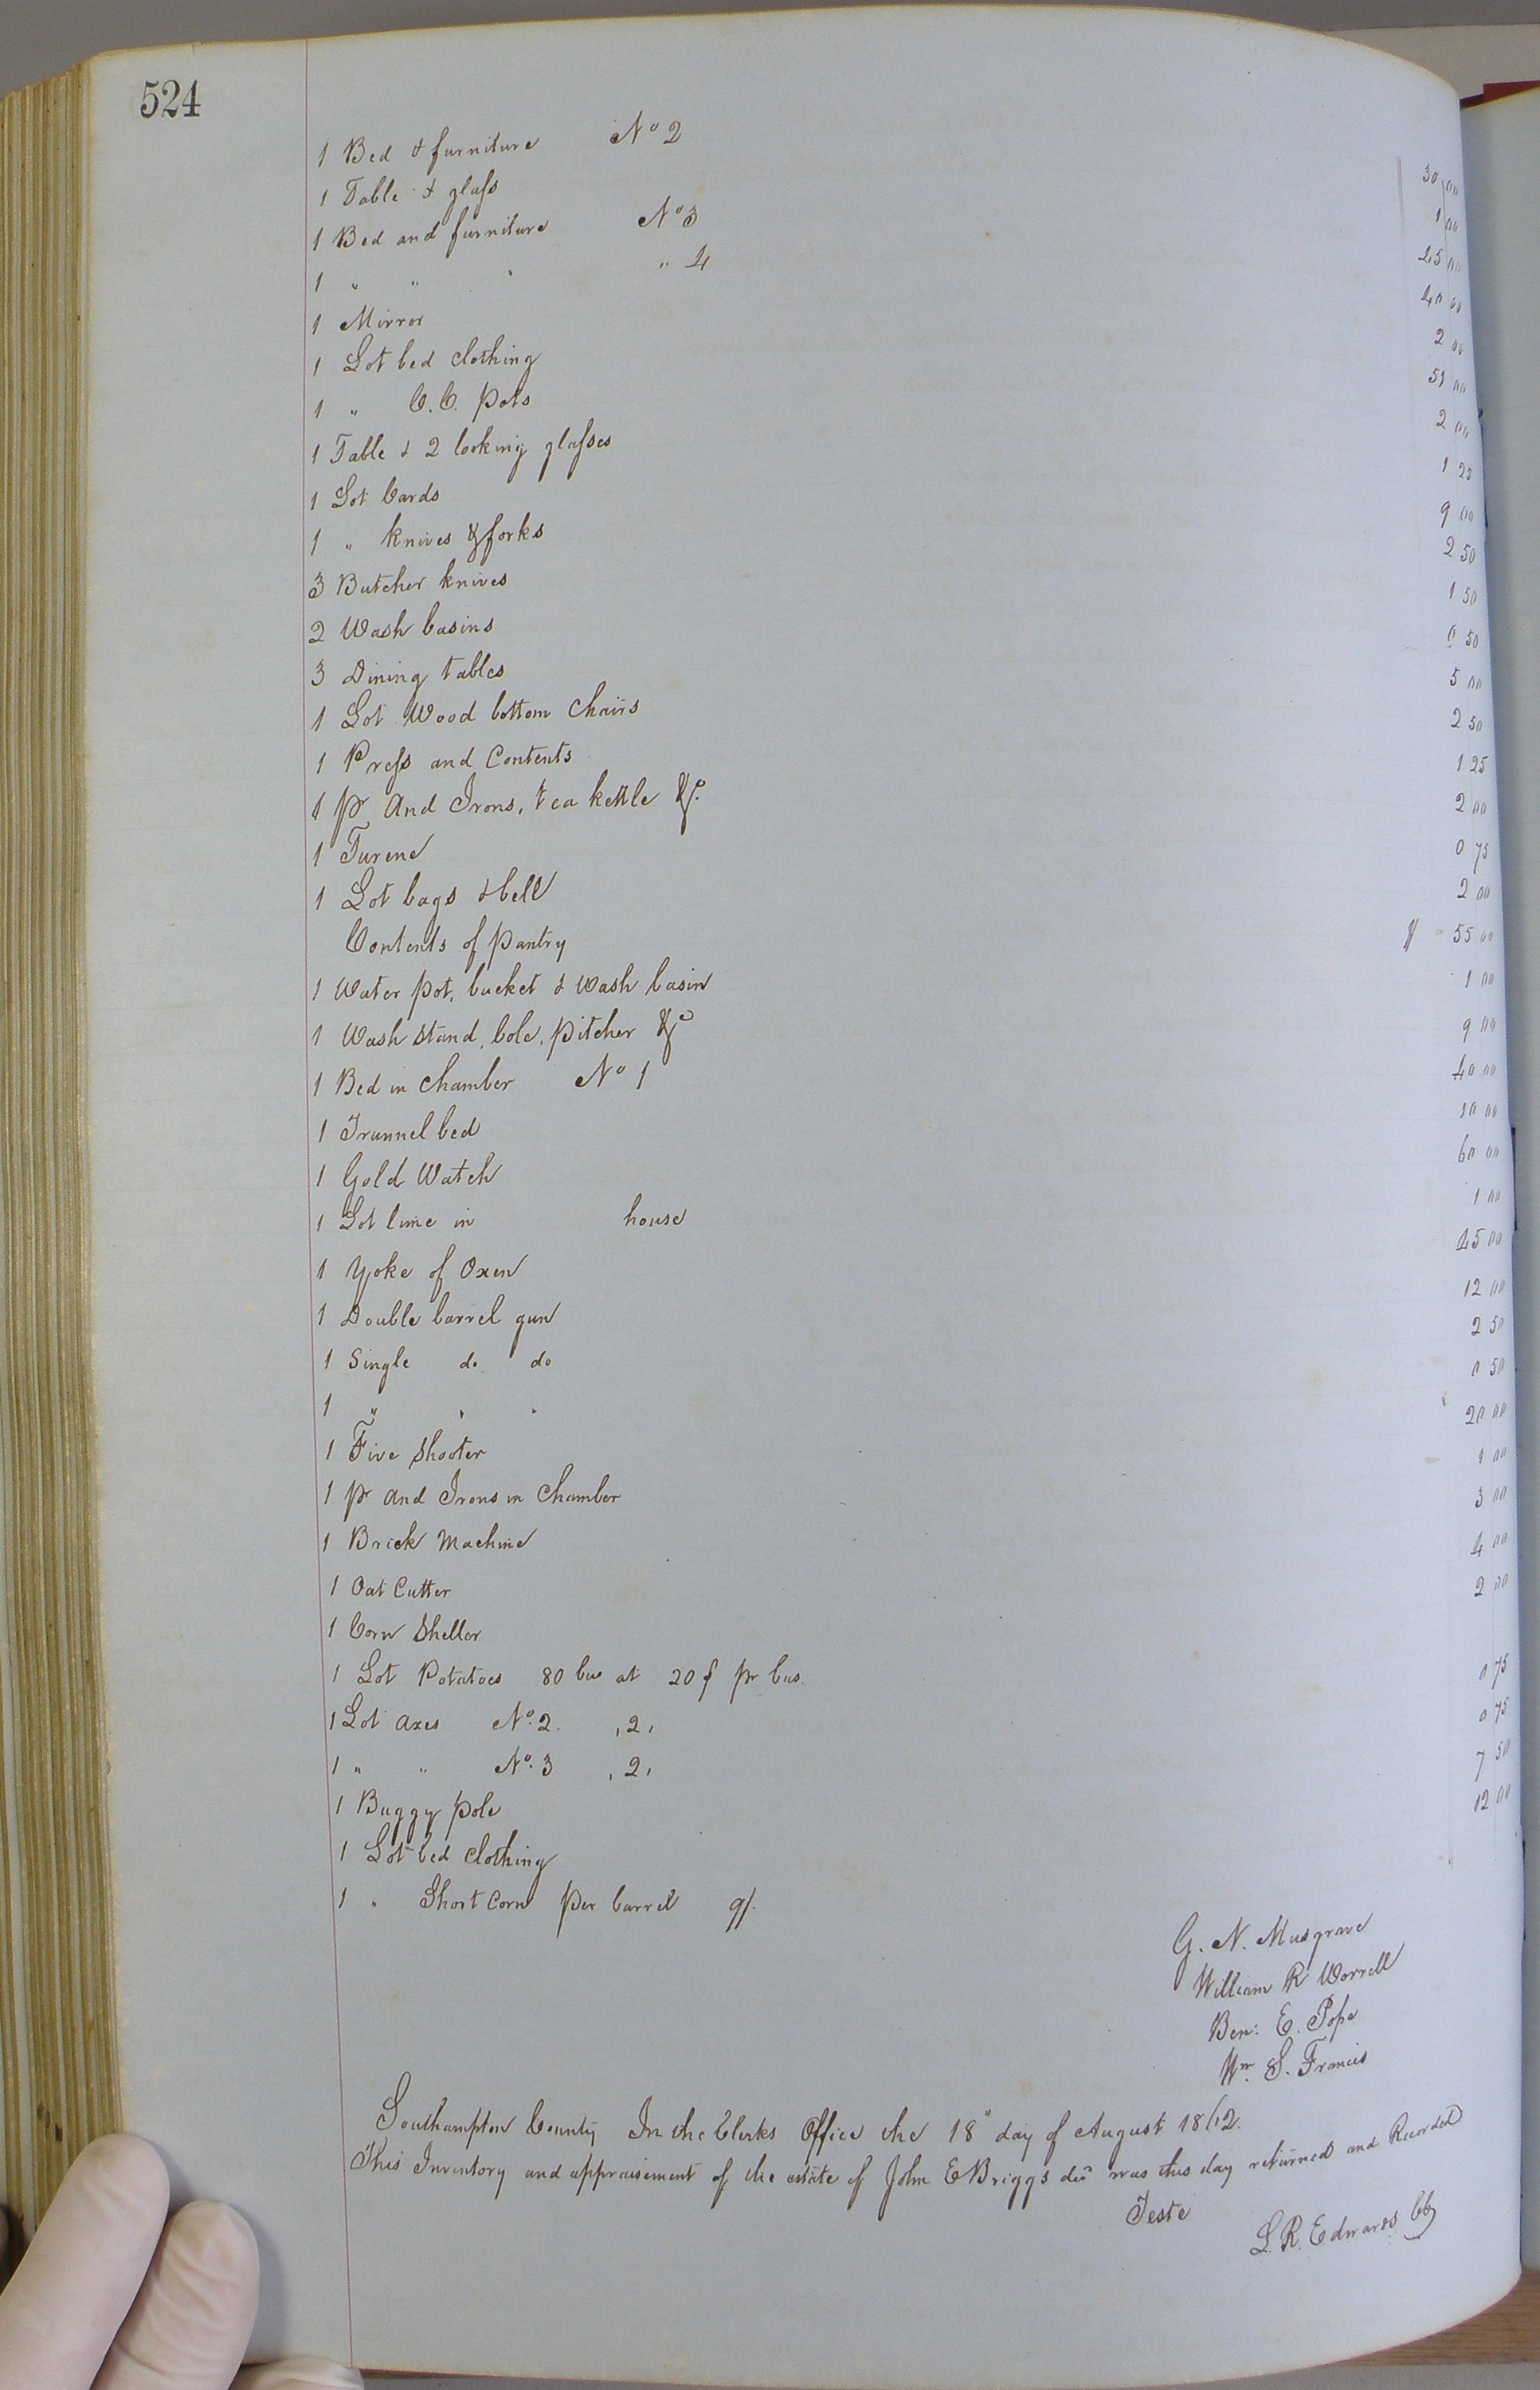 524
1 Bed & furniture No 2 30 00
1 Table & glass 1 00
1 Bed and furniture No 3 45 00
1 " " " " 4 40 00
1 Mirror 2 00
1 Lot bed clothing 51 00
1 " C.C. pots 2 00
1 Table & 2 looking glasses 1 25
1 Lot Cards 9 00
1 " knives & forks 2 50
3 Butcher knives 1 50
2 Wash basins 0 50
3 Dining tables 5 00
1 Lot Wood bottom Chairs 2 50
1 Press and Contents 1 25
1 pr And Irons, tea kettle &c. 2 00
1 Turene 0 75
1 Lot bags & bell 2 00
Contents of pantry $ 55 00
1 Water pot, bucket & wash basin 1 00
1 Wash stand, bole, pitcher &c 9 00
1 Bed in chamber No 1 40 00
1 Trunnel bed 10 00
1 Gold Watch 60 00
1 Lot lime in house 1 00
1 Yoke of Oxen 45 00
1 Double barrel gun 12 00
1 Single do. do 2 50
1 " " " 0 50
1 Five shooter 20 00
1 pr And Irons in Chamber 1 00
1 Brick Machine 3 00
1 Oat Cutter 4 00
1 Corn Sheller 2 00
1 Lot Potatoes 80 bus at 20 ¢ pr bus.
1 Lot axes No. 2. ,2, 0 75
1 " " No. 3 ,2, 0 75
1 Buggy pole 7 50
1 Lot bed clothing 12 00
1 " Short Corn per barrel 9/.
G. N. Musgrave
William R Worrell
Ben: E. Pope
Wm. S. Francis
Southampton County In the Clerks Office the 18" day of August 1862.
This Inventory and appraisement of the estate of John E Briggs dec was this day returned and Recorded
Teste
L. R. Edwards CC